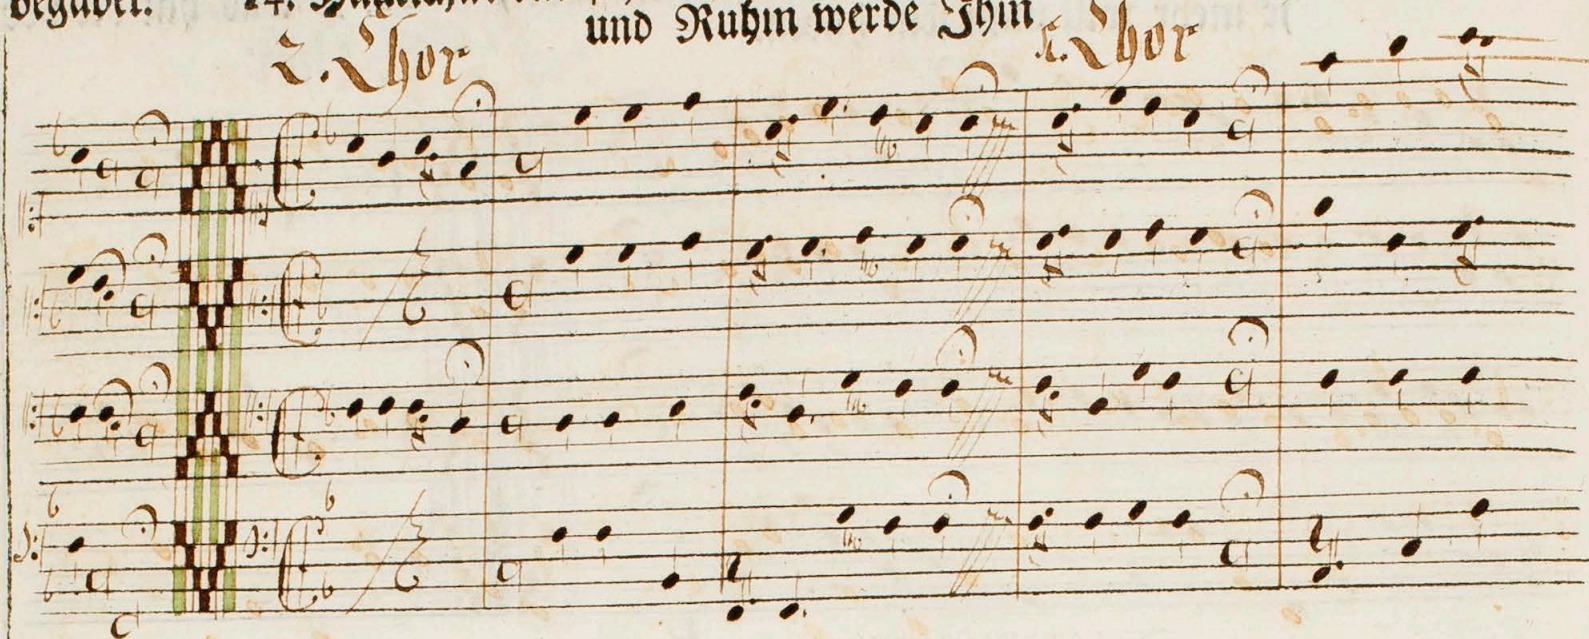 begabet.
und Ruhm werde Ihm
2. Chor
1. Chor